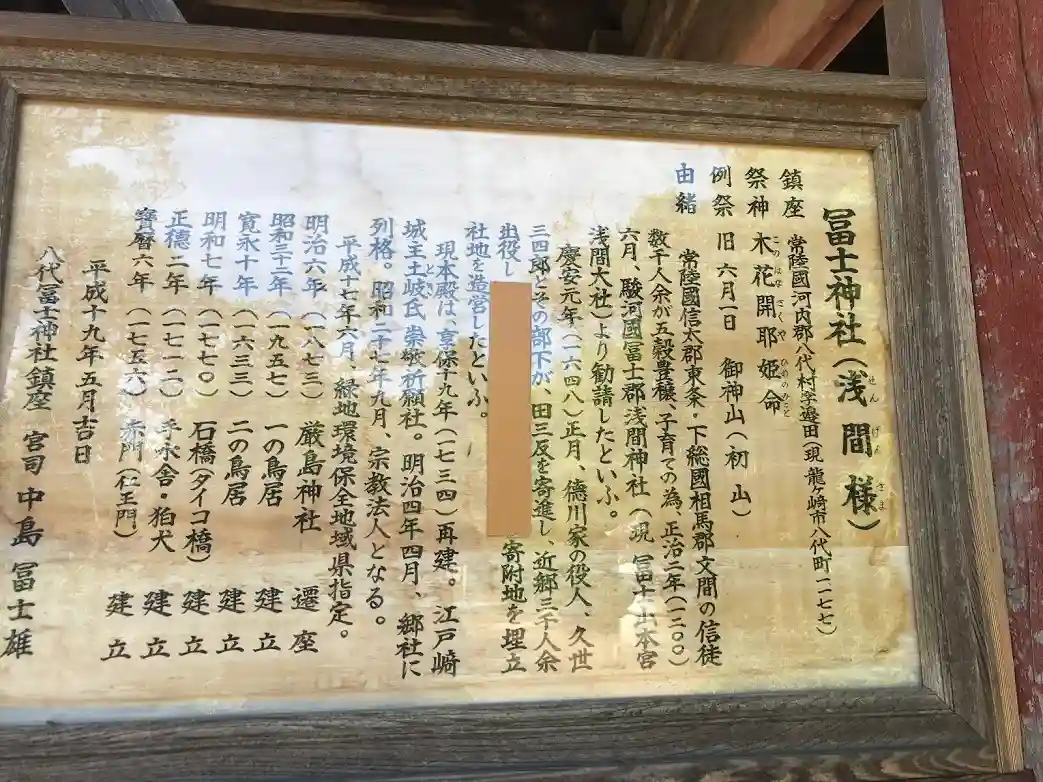 冨士神社（浅間様）
せんげんさま
鎮座 常陸國河内郡八代村字遶田（現 龍ケ崎市八代町一一七七）
祭神 木花開耶姫命
このはなさくやひめのみこと
例祭 旧 六月一日 御神山（初山）
由緒
常陸國信太郡東条・下総國相馬郡文間の信徒
数千人余が五穀豊穣、子育ての為、正治二年（一二〇〇）
六月、駿河國冨士郡浅間神社（現 冨士山本宮
浅間大社）より勧請したといふ。
慶安元年（一六四八）正月、徳川家の役人、久世
三四郎とその部下が、田三反を寄進し、近郷三千人余
出役し
寄附地を埋立
社地を造営したといふ。
現本殿は、享保十九年（一七三四）再建。江戸﨑
城主土岐氏 崇敬祈願社。明治四年四月、郷社に
とき
列格。昭和二十七年九月、宗教法人となる。
平成十七年六月、緑地環境保全地域県指定。
明治六年（一八七三）厳島神社 遷座
昭和三十二年（一九五七）一の鳥居 建立
寛永十年（一六三三）二の鳥居 建立
明和七年（一七七〇）石橋（タイコ橋） 建立
正徳二年（一七一二）手水舎・狛犬 建立
寶暦六年（一七五六）赤門（仁王門） 建立
平成十九年五月吉日
八代冨士神社鎮座 宮司 中島冨士雄